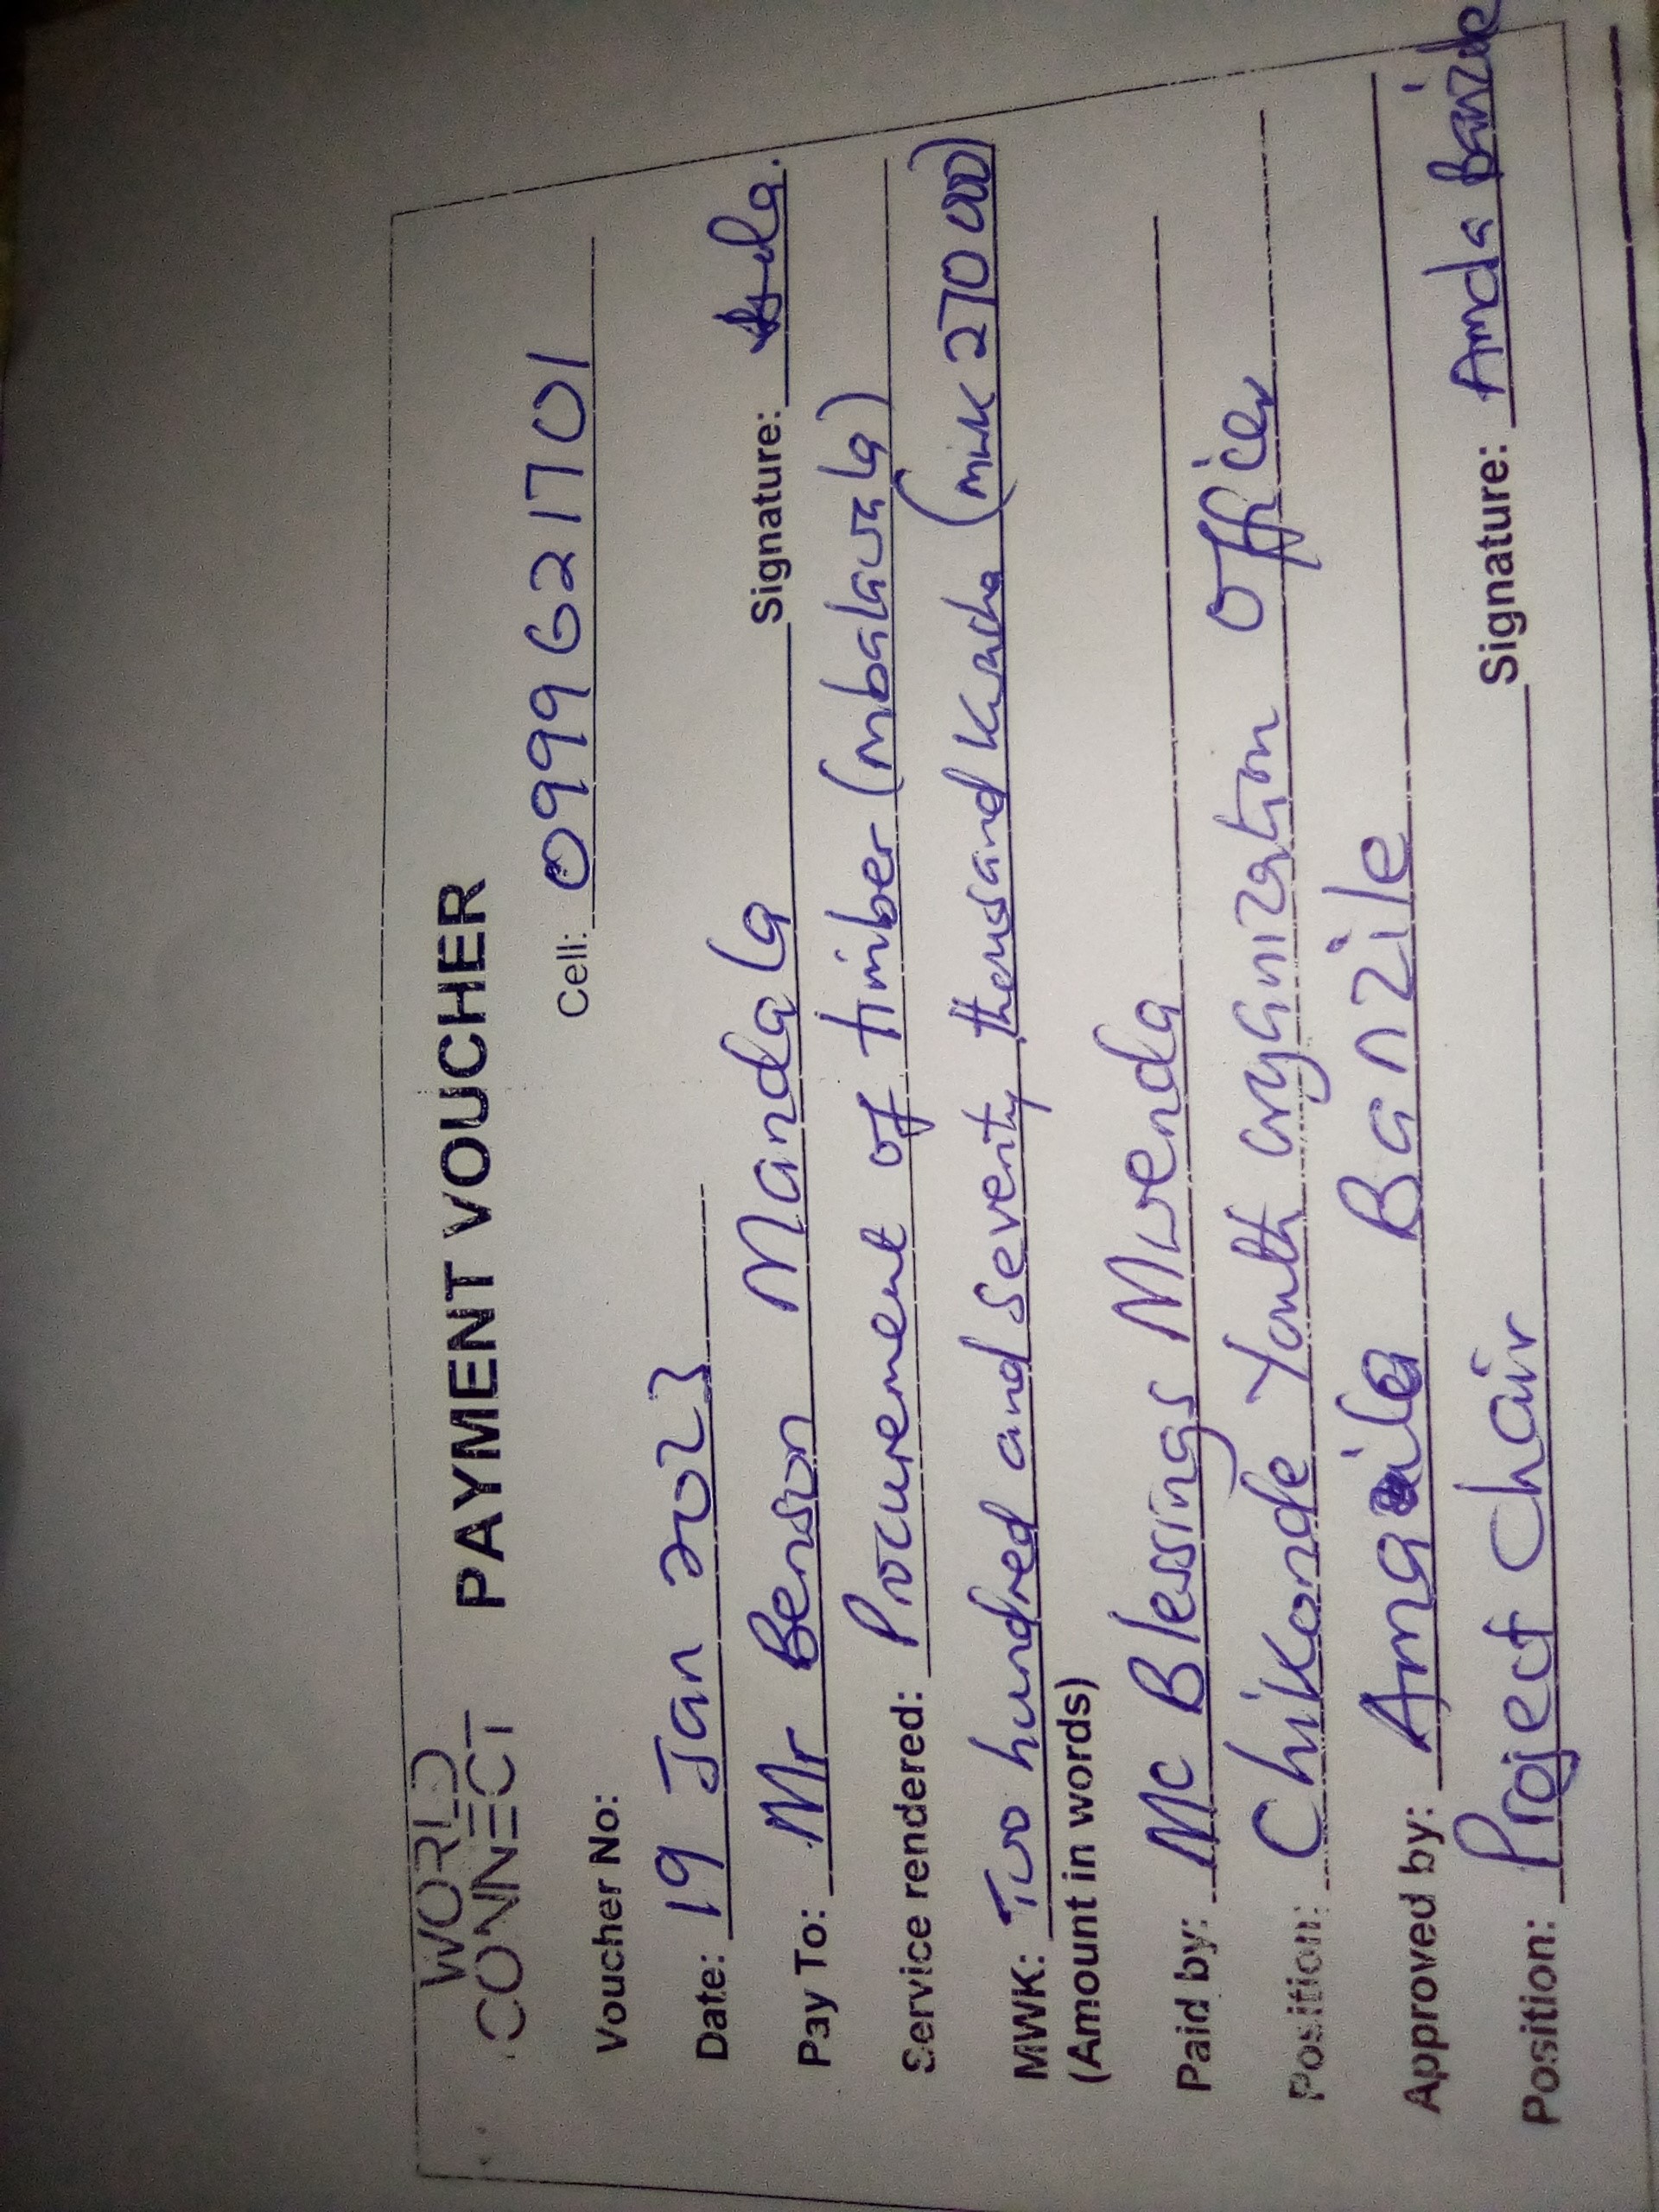 WORLD
CONNECT
PAYMENT VOUCHER
Voucher No:
Cell: 0999621701
Date: 19 Jan 2023
Pay To: Mr Benson Mandala Signature:
Service rendered: Procurement of timber (mbalawala)
MWK: Two hundred and seventy thousand kwacha (mwk 270 000)
(Amount in words)
Paid by: Mc Blessings Mwenda
Position: Chikonde Youth organization officer
Approved by: Banzile
Position: Project Chair Signature: Amda Banzile